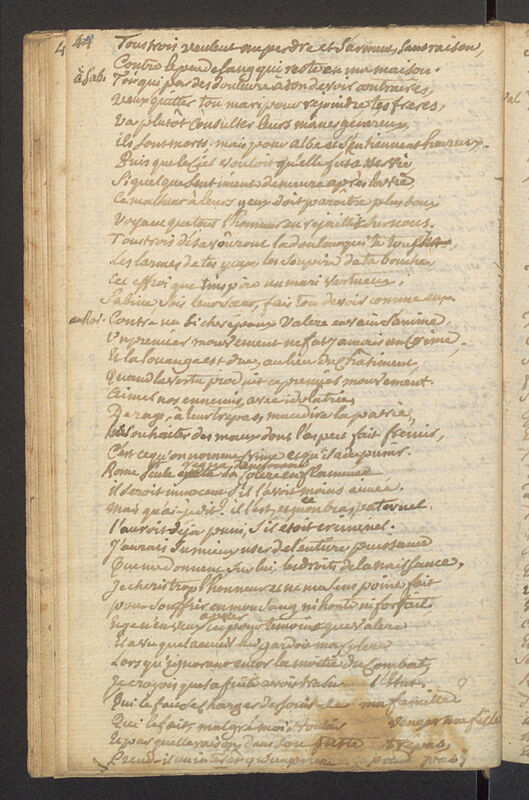 4 44 Tous trois veulent me perdre et s'arment sans raison,
Contre le peu de sang qui reste en ma maison.
à Sab. Toi qui par des douleurs à ton devoir contraires,
Veux quitter ton mari pour rejoindre tes freres,
Va plutôt consulter leurs manes genereux
ils sont morts, mais pour albe et s'en tiennent heureux.
Puis que le Ciel vouloit qu'elle fut asservie
Si quelque sentiment demeure après la vie
Ce malheur à leurs yeux doit paroître plus doux
Voyant que tout l'honneur en rejaillit sur nous.
Tous trois désavouront la douleur qui te
Les larmes de tes yeux, les soupirs de ta bouche
Cet effroi que t'inspire un mari vertueux.
Sabine sois leur sœur, fais ton devoir comme eux.
au Roi. Contre un si cher epoux Valere en vain s'anime
Un premier mouvement ne fut jamais un Crime,
Et la louange est due, au lieu du Châtiment,
Quand la vertu produit ce premier mouvement.
Aimer nos ennemis, avec idolatrie,
De rage, à leur trepas, maudire la patrie,
Souhaiter des maux dont l'aspect fait fremir,
C'est ce qu'on nomme Crime et qu'il a du punir.
Rome seule sa Colere enflammée
il seroit innocent s'il l'avoit moins aimée.
mais qu'ai-je dit? il l'est, et mon bras paternel
l'auroit déja puni, s'il etoit criminel.
J'aurois sû mieux user de l'entiere puissance
Que me donnent sur lui, les droits de la naissance.
Je cheris trop l'honneur et ne suis point fait
pour souffrir en mon sang ni honte ni forfait.
je n'en veux ici pour temoin que Valere
il a vu quel accueil lui gardoit ma Colere
Lors qu'ignorant encor la moitié du Combat,
Je croyois que sa fuite avoit trahi l'Etat.
Qui le fait se charger des soins de ma famille?
Qui le fait, malgré moi vouloir venger ma fille
Et par quelle raison, dans son trepas
Prend-il un interêt qu'un pere prend pas?